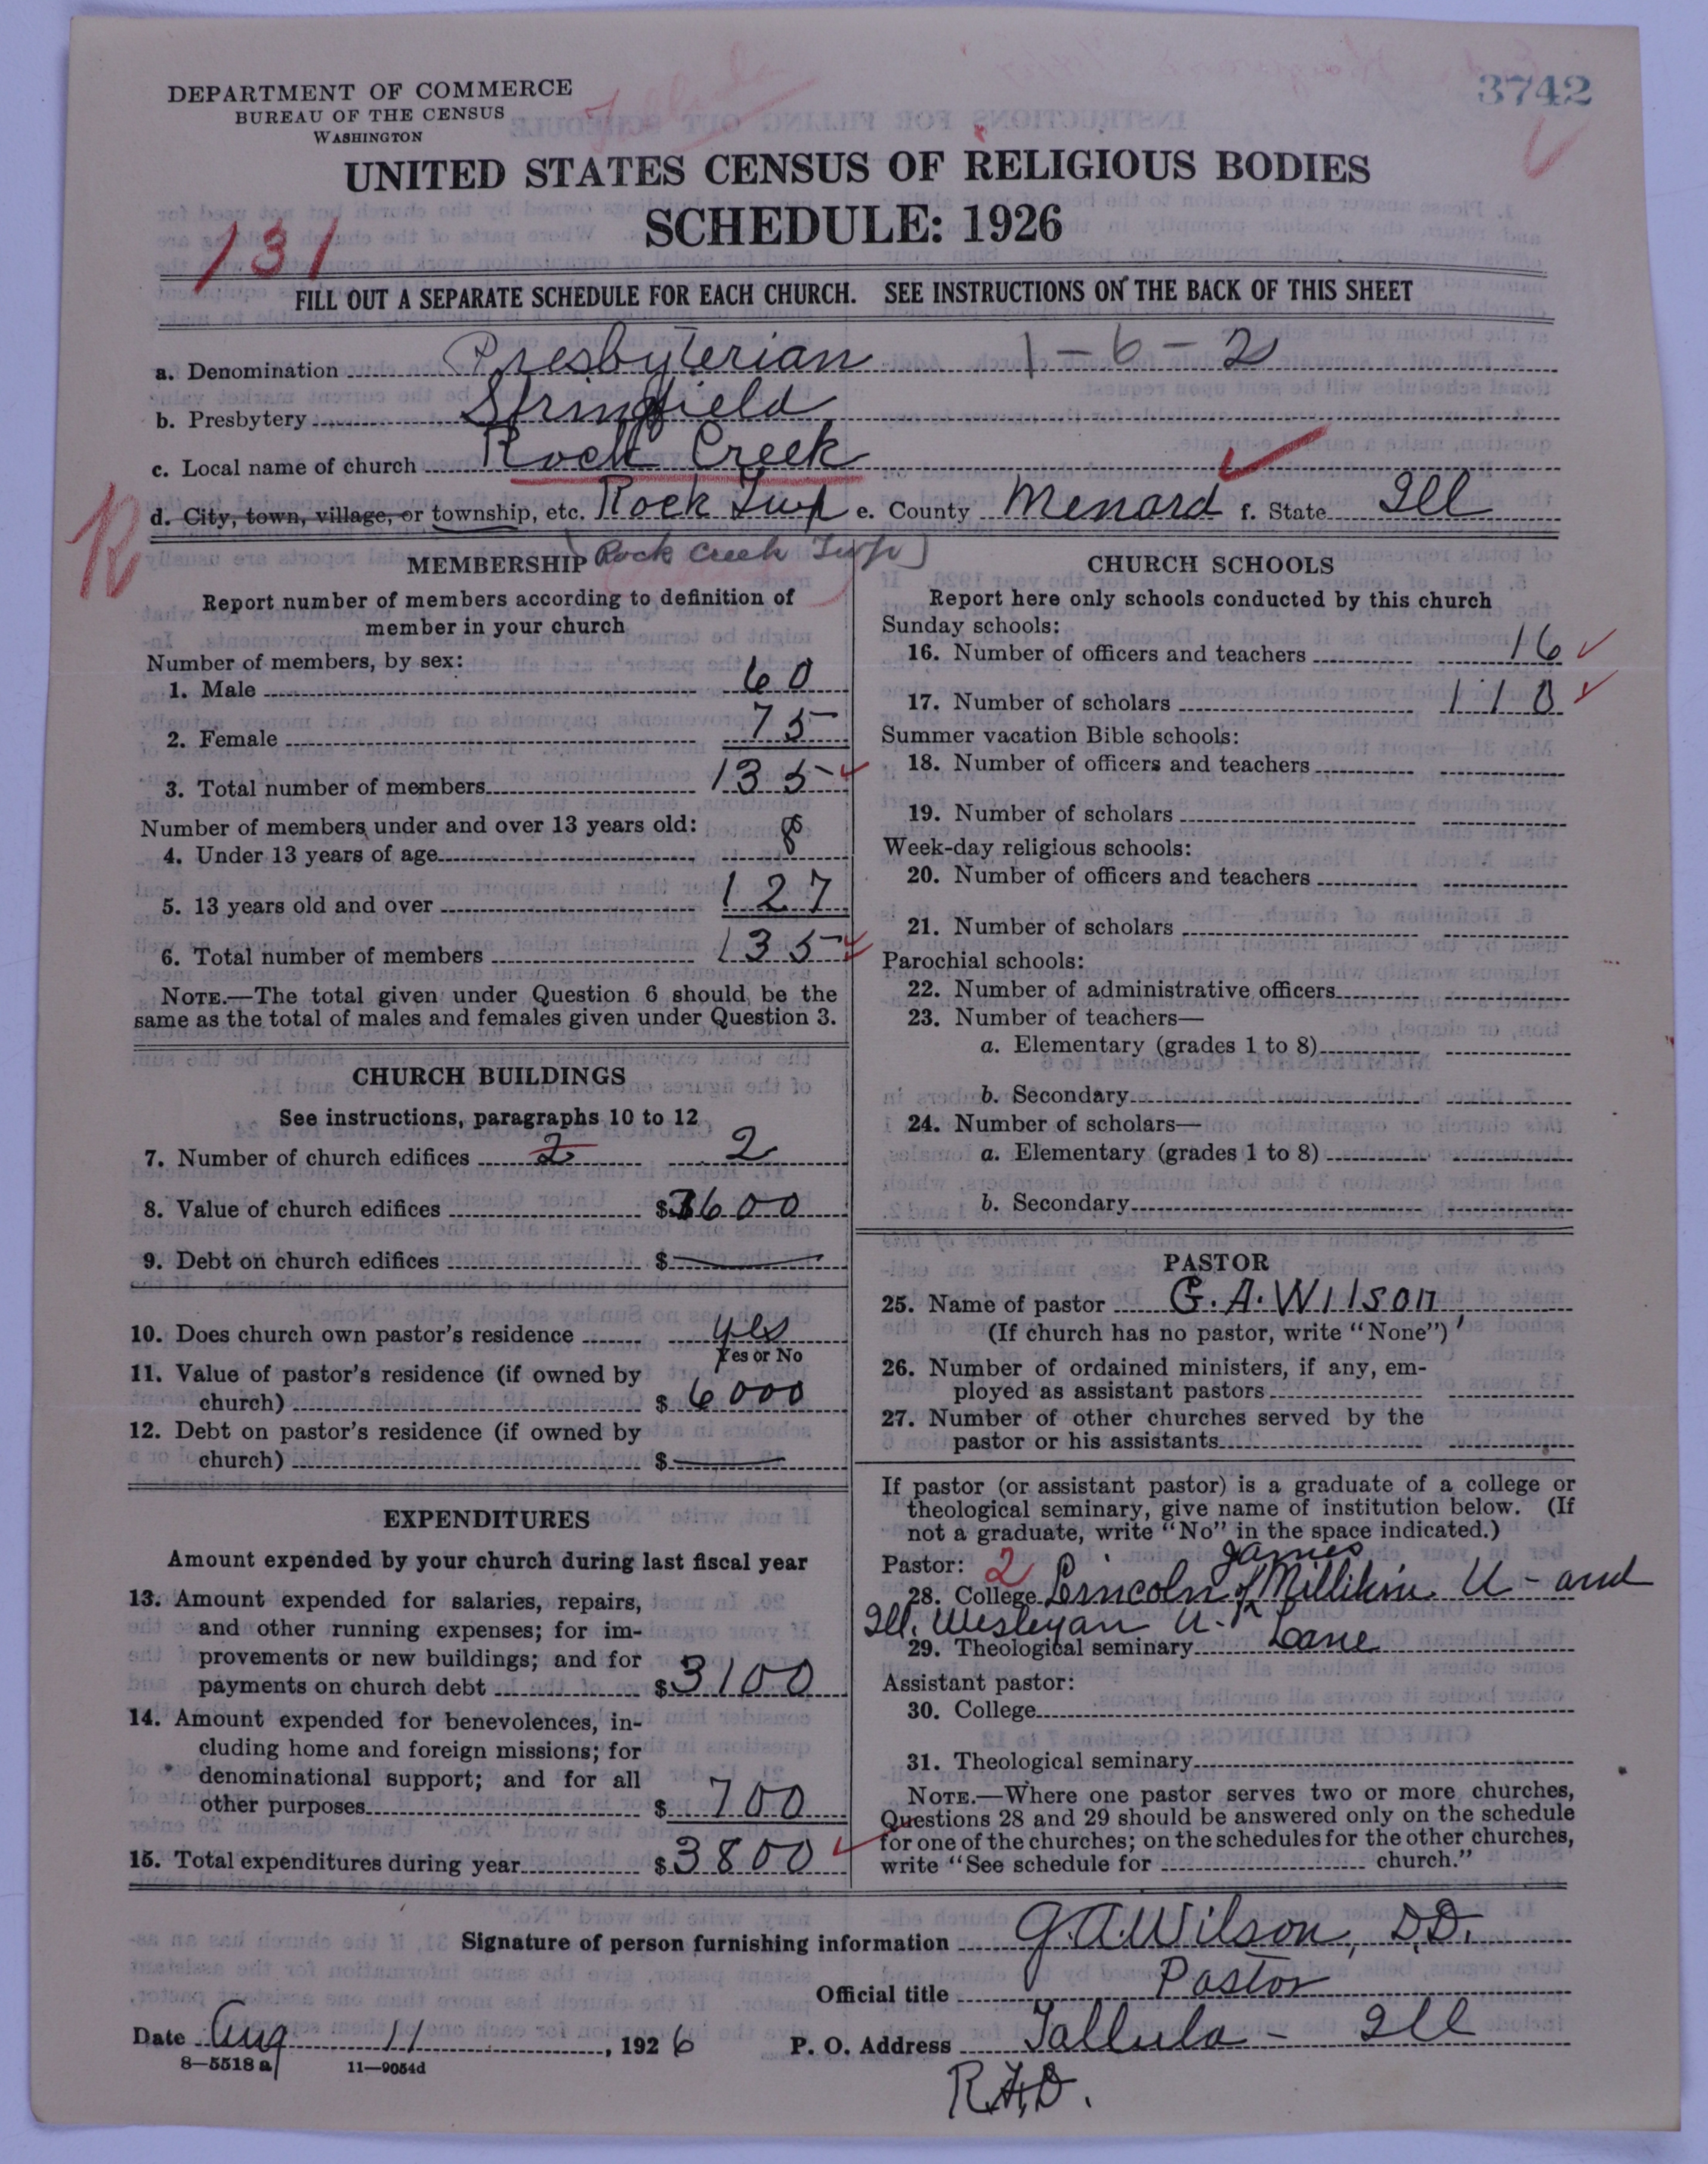 3742
DEPARTMENT OF COMMERCE
BUREAU OF THE CENSUS
WASHINGTON
UNITED STATES CENSUS OF RELIGIOUS BODIES
SCHEDULE: 1926
131
FILL OUT A SEPARATE SCHEDULE FOR EACH CHURCH. SEE INSTRUCTIONS ON THE BACK OF THIS SHEET
a. Denomination Presbyterian 1-6-2
b. Presbytery Springfield
c. Local name of church Rock Creek
d. City, town, village, or township, etc. Rock Twp e. County Menard f. State Ill
R
Rock Creek Twp
MEMBERSHIP
Report number of members according to definition of
member in your church
Number of members, by sex:
1. Male 60
2. Female 75
3. Total number of members 135
Number of members under and over 13 years old:
4. Under 13 years of age 8
5. 13 years old and over 127
6. Total number of members 135
NOTE.—The total given under Question 6 should be the
same as the total of males and females given under Question 3.
CHURCH BUILDINGS
See instructions, paragraphs 10 to 12
7. Number of church edifices 2 2
8. Value of church edifices $3600
9. Debt on church edifices $
10. Does church own pastor's residence yes
Yes or No
11. Value of pastor's residence (if owned by
church) $6000
12. Debt on pastor's residence (if owned by
church) $
EXPENDITURES
Amount expended by your church during last fiscal year
13. Amount expended for salaries, repairs,
and other running expenses; for im-
provements or new buildings; and for
payments on church debt $3100
14. Amount expended for benevolences, in-
cluding home and foreign missions; for
denominational support; and for all
other purposes $700
15. Total expenditures during year $3800
CHURCH SCHOOLS
Report here only schools conducted by this church
Sunday schools:
16. Number of officers and teachers 16
17. Number of scholars 110
Summer vacation Bible schools:
18. Number of officers and teachers
19. Number of scholars
Week-day religious schools:
20. Number of officers and teachers
21. Number of scholars
Parochial schools:
22. Number of administrative officers
23. Number of teachers—
a. Elementary (grades 1 to 8)
b. Secondary
24. Number of scholars—
a. Elementary (grades 1 to 8)
b. Secondary
PASTOR
25. Name of pastor G. A. Wilson
(If church has no pastor, write "None")
26. Number of ordained ministers, if any, em-
ployed as assistant pastors
27. Number of other churches served by the
pastor or his assistants
If pastor (or assistant pastor) is a graduate of a college or
theological seminary, give name of institution below. (If
not a graduate, write "No" in the space indicated.)
Pastor: 2 James
28. College Lincoln of Millikin U - and
Ill. Wesleyan U.
29. Theological seminary Lane
Assistant pastor:
30. College
31. Theological seminary
NOTE.—Where one pastor serves two or more churches,
Questions 28 and 29 should be answered only on the schedule
for one of the churches; on the schedules for the other churches,
write "See schedule for church."
Signature of person furnishing information G.A. Wilson, D.D.
Official title Pastor
Date Aug 11, 1926 P. O. Address Tallula - Ill
8—5518 a 11—9054d
R.F.D.